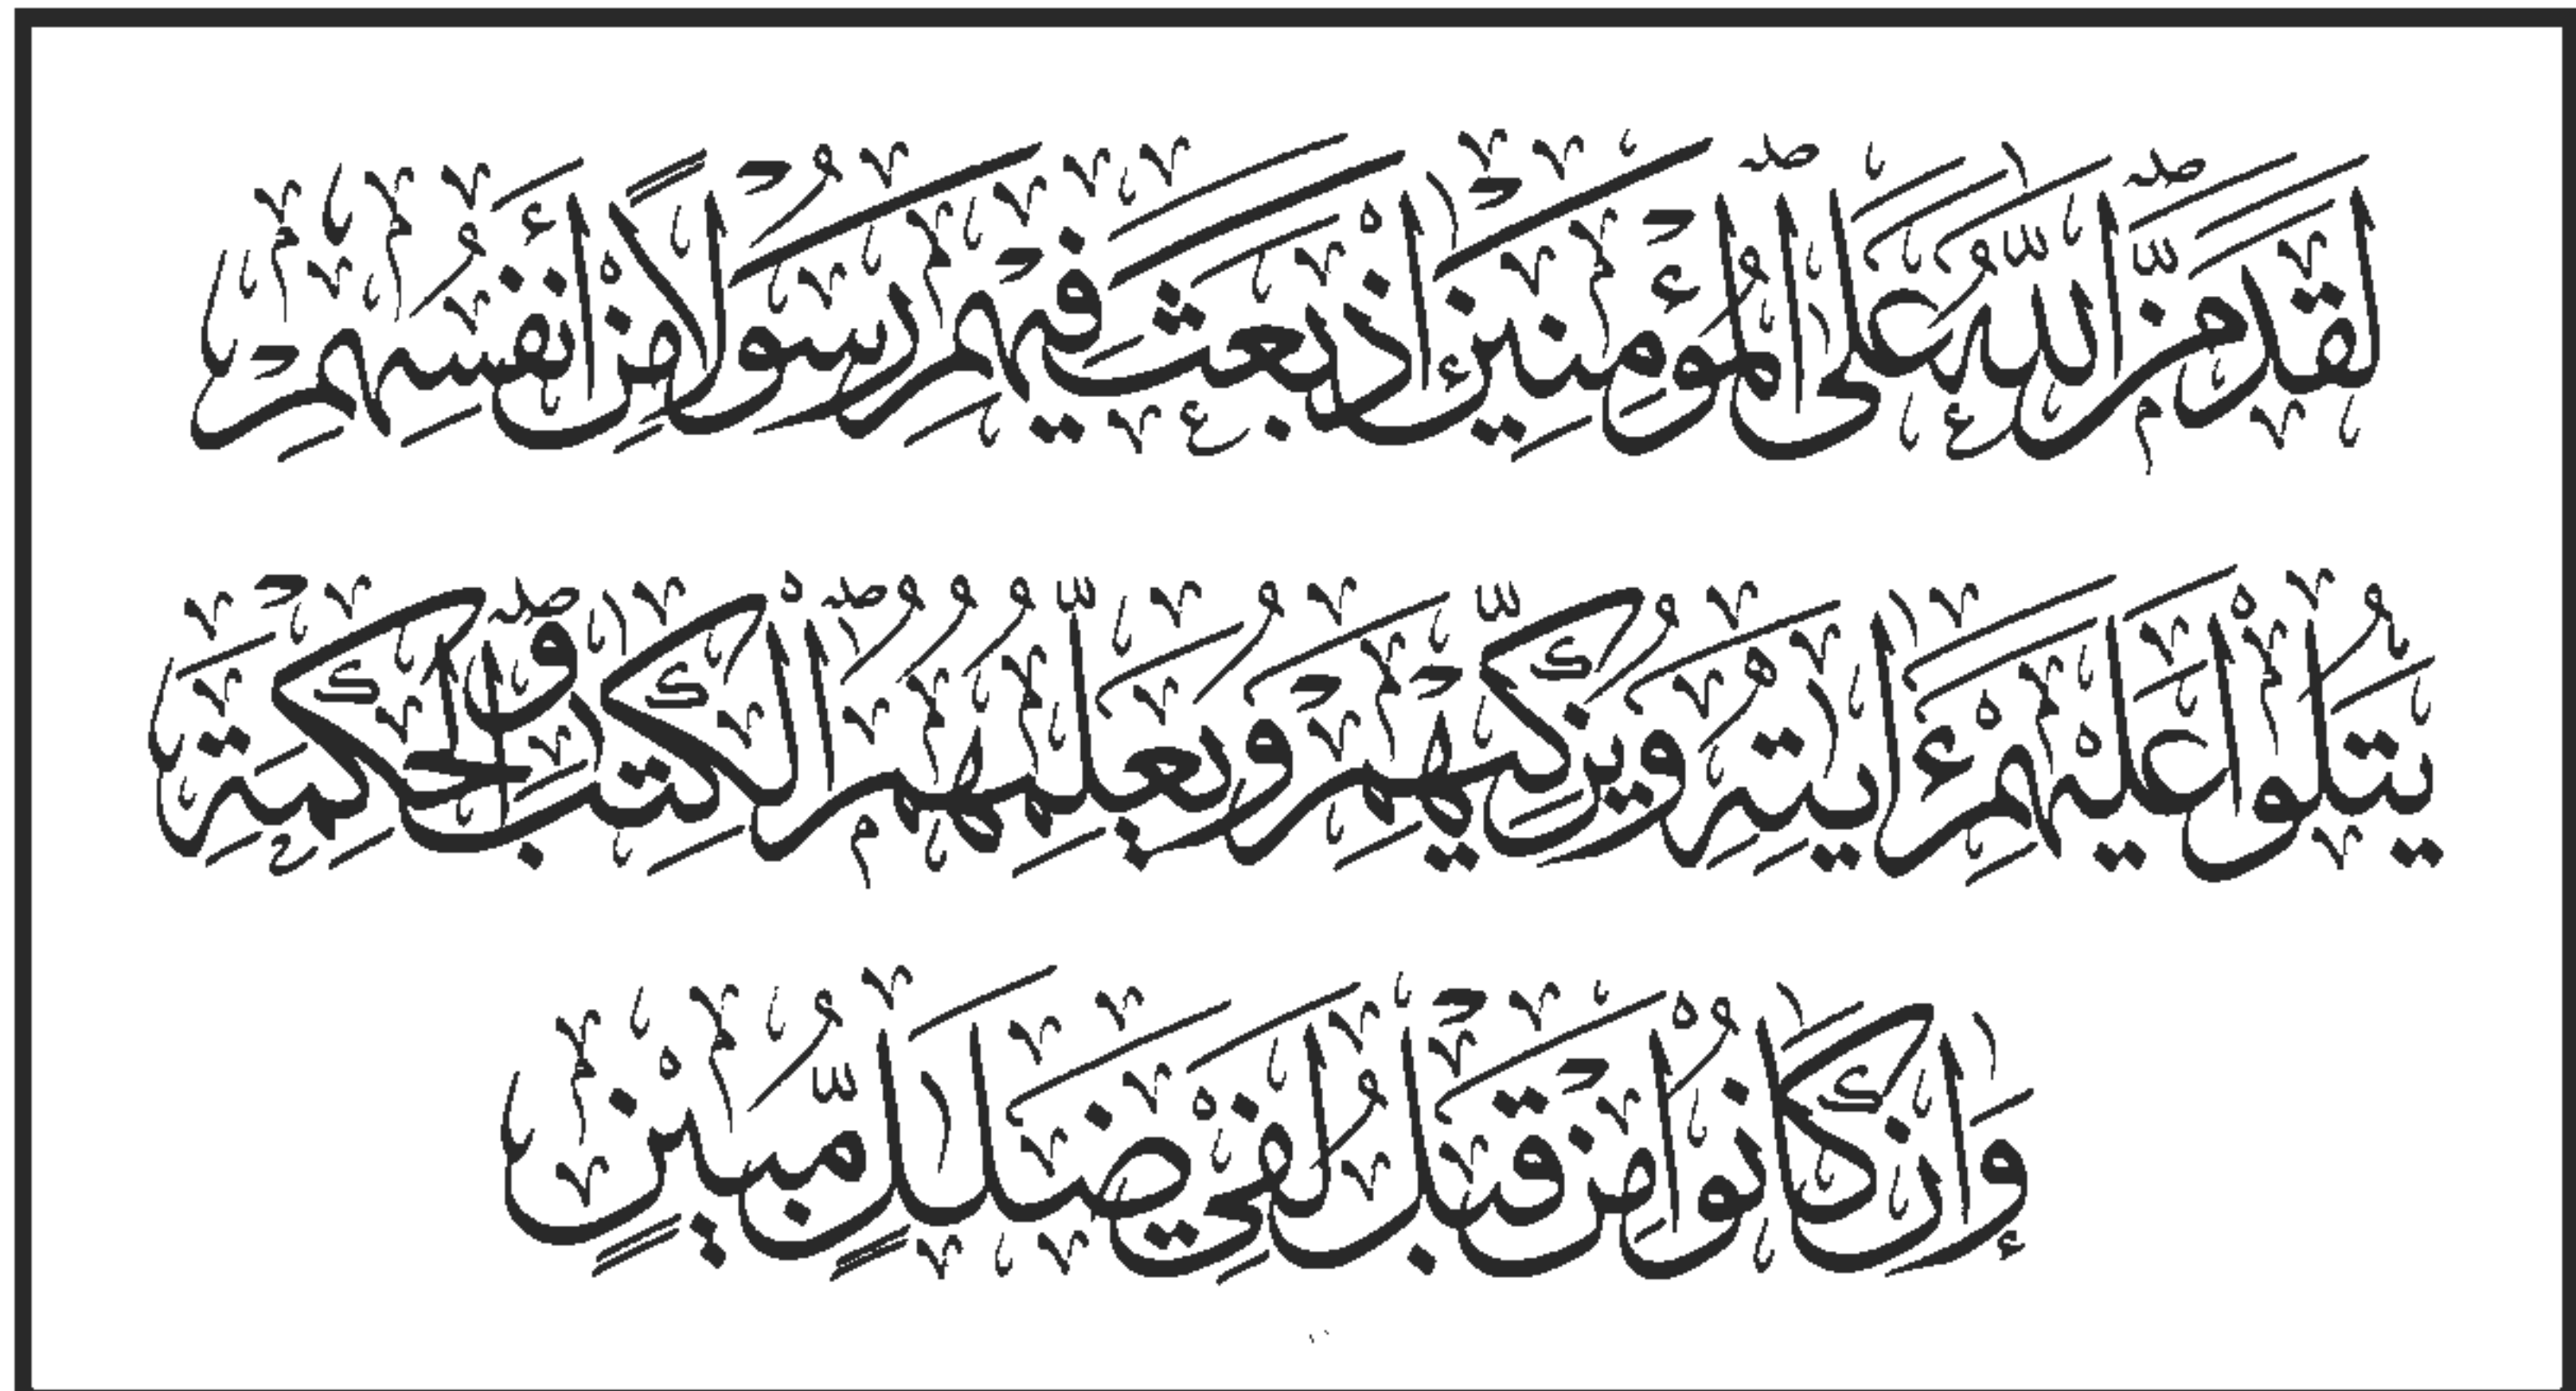 لَقَدْ مَنَّ ٱللَّهُ عَلَى ٱلْمُؤْمِنِينَ إِذْ بَعَثَ فِيهِمْ رَسُولًا مِنْ أَنْفُسِهِمْ
يَتْلُوا عَلَيْهِمْ ءَايَٰتِهِ وَيُزَكِّيهِمْ وَيُعَلِّمُهُمُ ٱلْكِتَٰبَ وَٱلْحِكْمَةَ
وَإِنْ كَانُوا مِنْ قَبْلُ لَفِي ضَلَٰلٍ مُّبِينٍ